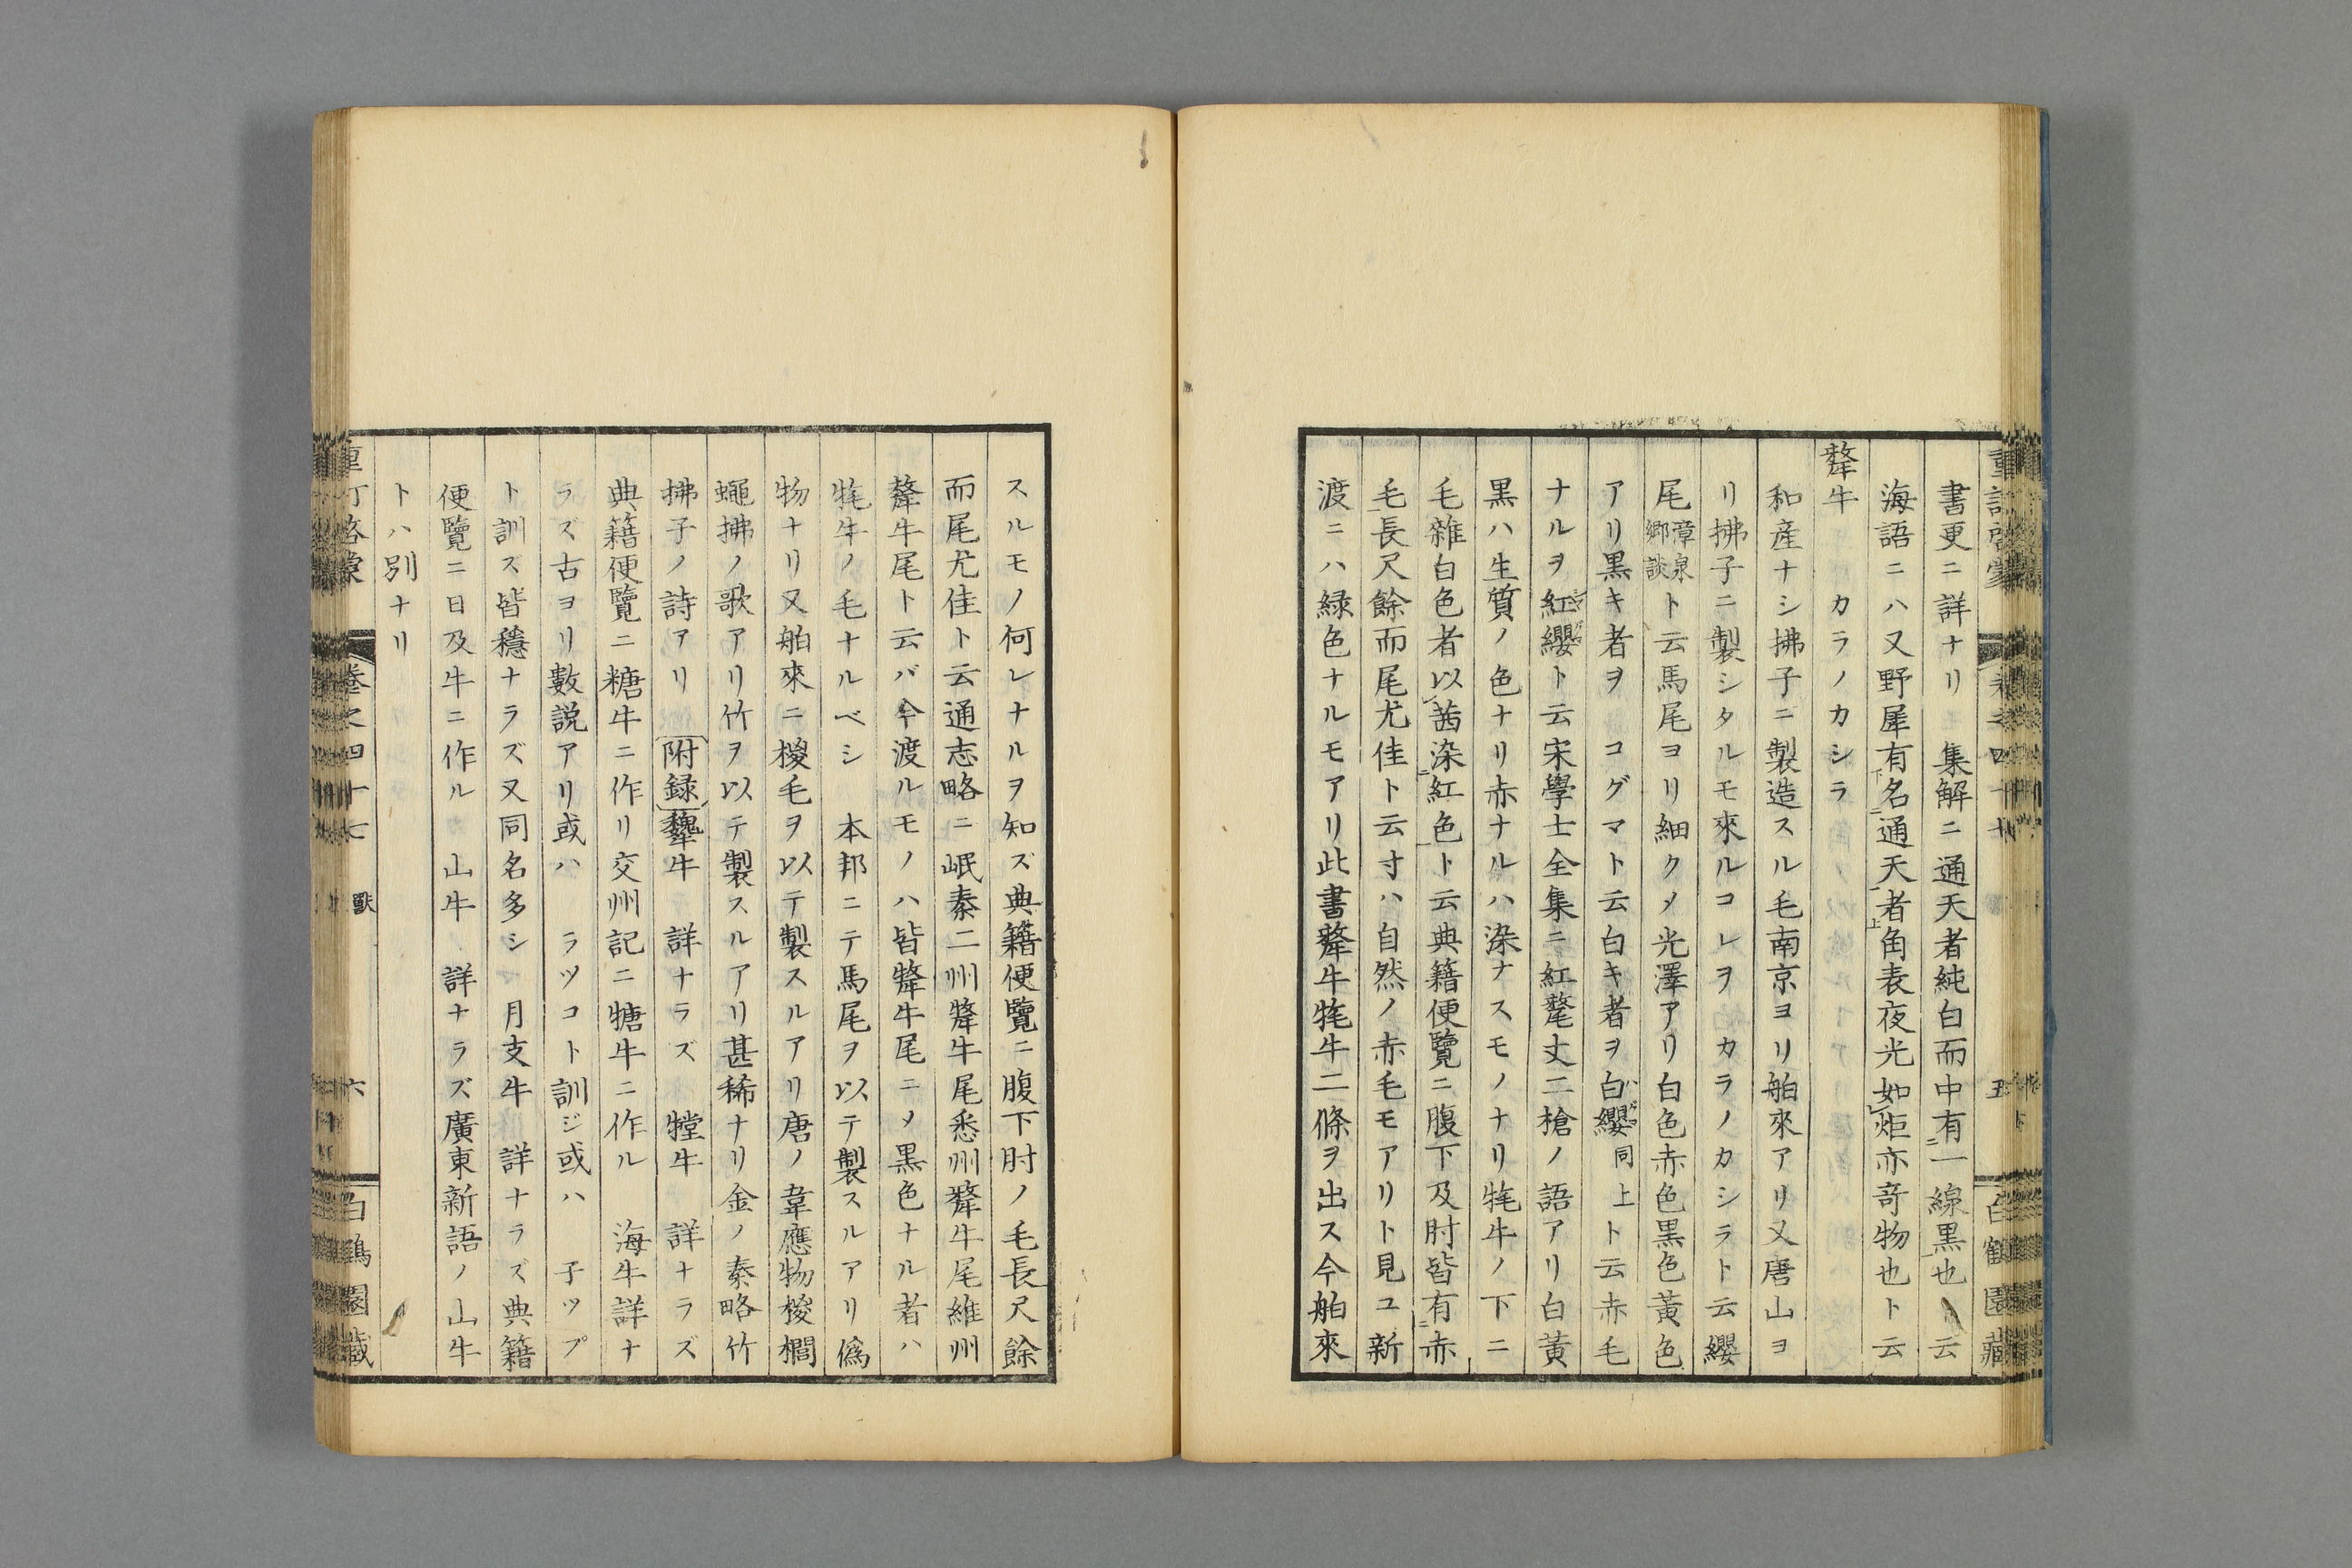 書更ニ詳ナリ　集解ニ通天者純白而中有一線黒也ト云
海語ニハ又野犀有名通天者角表夜光如炬亦奇物也ト云
犛牛　カラノカシラ
和産ナシ拂子ニ製造スル毛南京ヨリ舶來アリ又唐山ヨ
リ拂子ニ製シタルモ來ルコレヲカラノカシラト云纓
尾漳泉郷談ト云馬尾ヨリ細クメ光澤アリ白色赤色黒色黃色
アリ黒キ者ヲ　コグマト云白キ者ヲ白纓同上ト云赤毛
ナルヲ紅纓ト云宋學士全集ニ紅氂丈二槍ノ語アリ白黃
黒ハ生質ノ色ナリ赤ナルハ染ナスモノナリ㹈牛ノ下ニ
毛雜白色者以茜染紅色ト云典籍便覽ニ腹下及肘皆有赤
毛長尺餘而尾尤佳ト云寸ハ自然ノ赤毛モアリト見ユ新
渡ニハ緑色ナルモアリ此書犛牛㹈牛二條ヲ出ス今舶來
スルモノ何レナルヲ知ズ典籍便覽ニ腹下肘ノ毛長尺餘
而尾尤佳ト云通志略ニ岷秦二州犛牛尾悉州犛牛尾維州
犛牛尾ト云バ今渡ルモノハ皆犛牛尾ニメ黒色ナル者ハ
㹈牛ノ毛ナルベシ　本邦ニテ馬尾ヲ以テ製スルアリ偽
物ナリ又舶來ニ椶毛ヲ以テ製スルアリ唐ノ韋應物椶櫚
蠅拂ノ歌アリ竹ヲ以テ製スルアリ甚稀ナリ金ノ秦略竹
拂子ノ詩アリ　附録　犩牛　詳ナラズ　㹚牛　詳ナラズ
典籍便覽ニ糖牛ニ作リ交州記ニ㹔牛ニ作ル　海牛詳ナ
ラズ古ヨリ數説アリ或ハ　ラツコト訓ジ或ハ　子ツプ
ト訓ズ皆穩ナラズ又同名多シ　月支牛　詳ナラズ典籍
便覽ニ日及牛ニ作ル　山牛　詳ナラズ廣東新語ノ山牛
トハ別ナリ
卷之四十七　獸　六
白鶴園藏